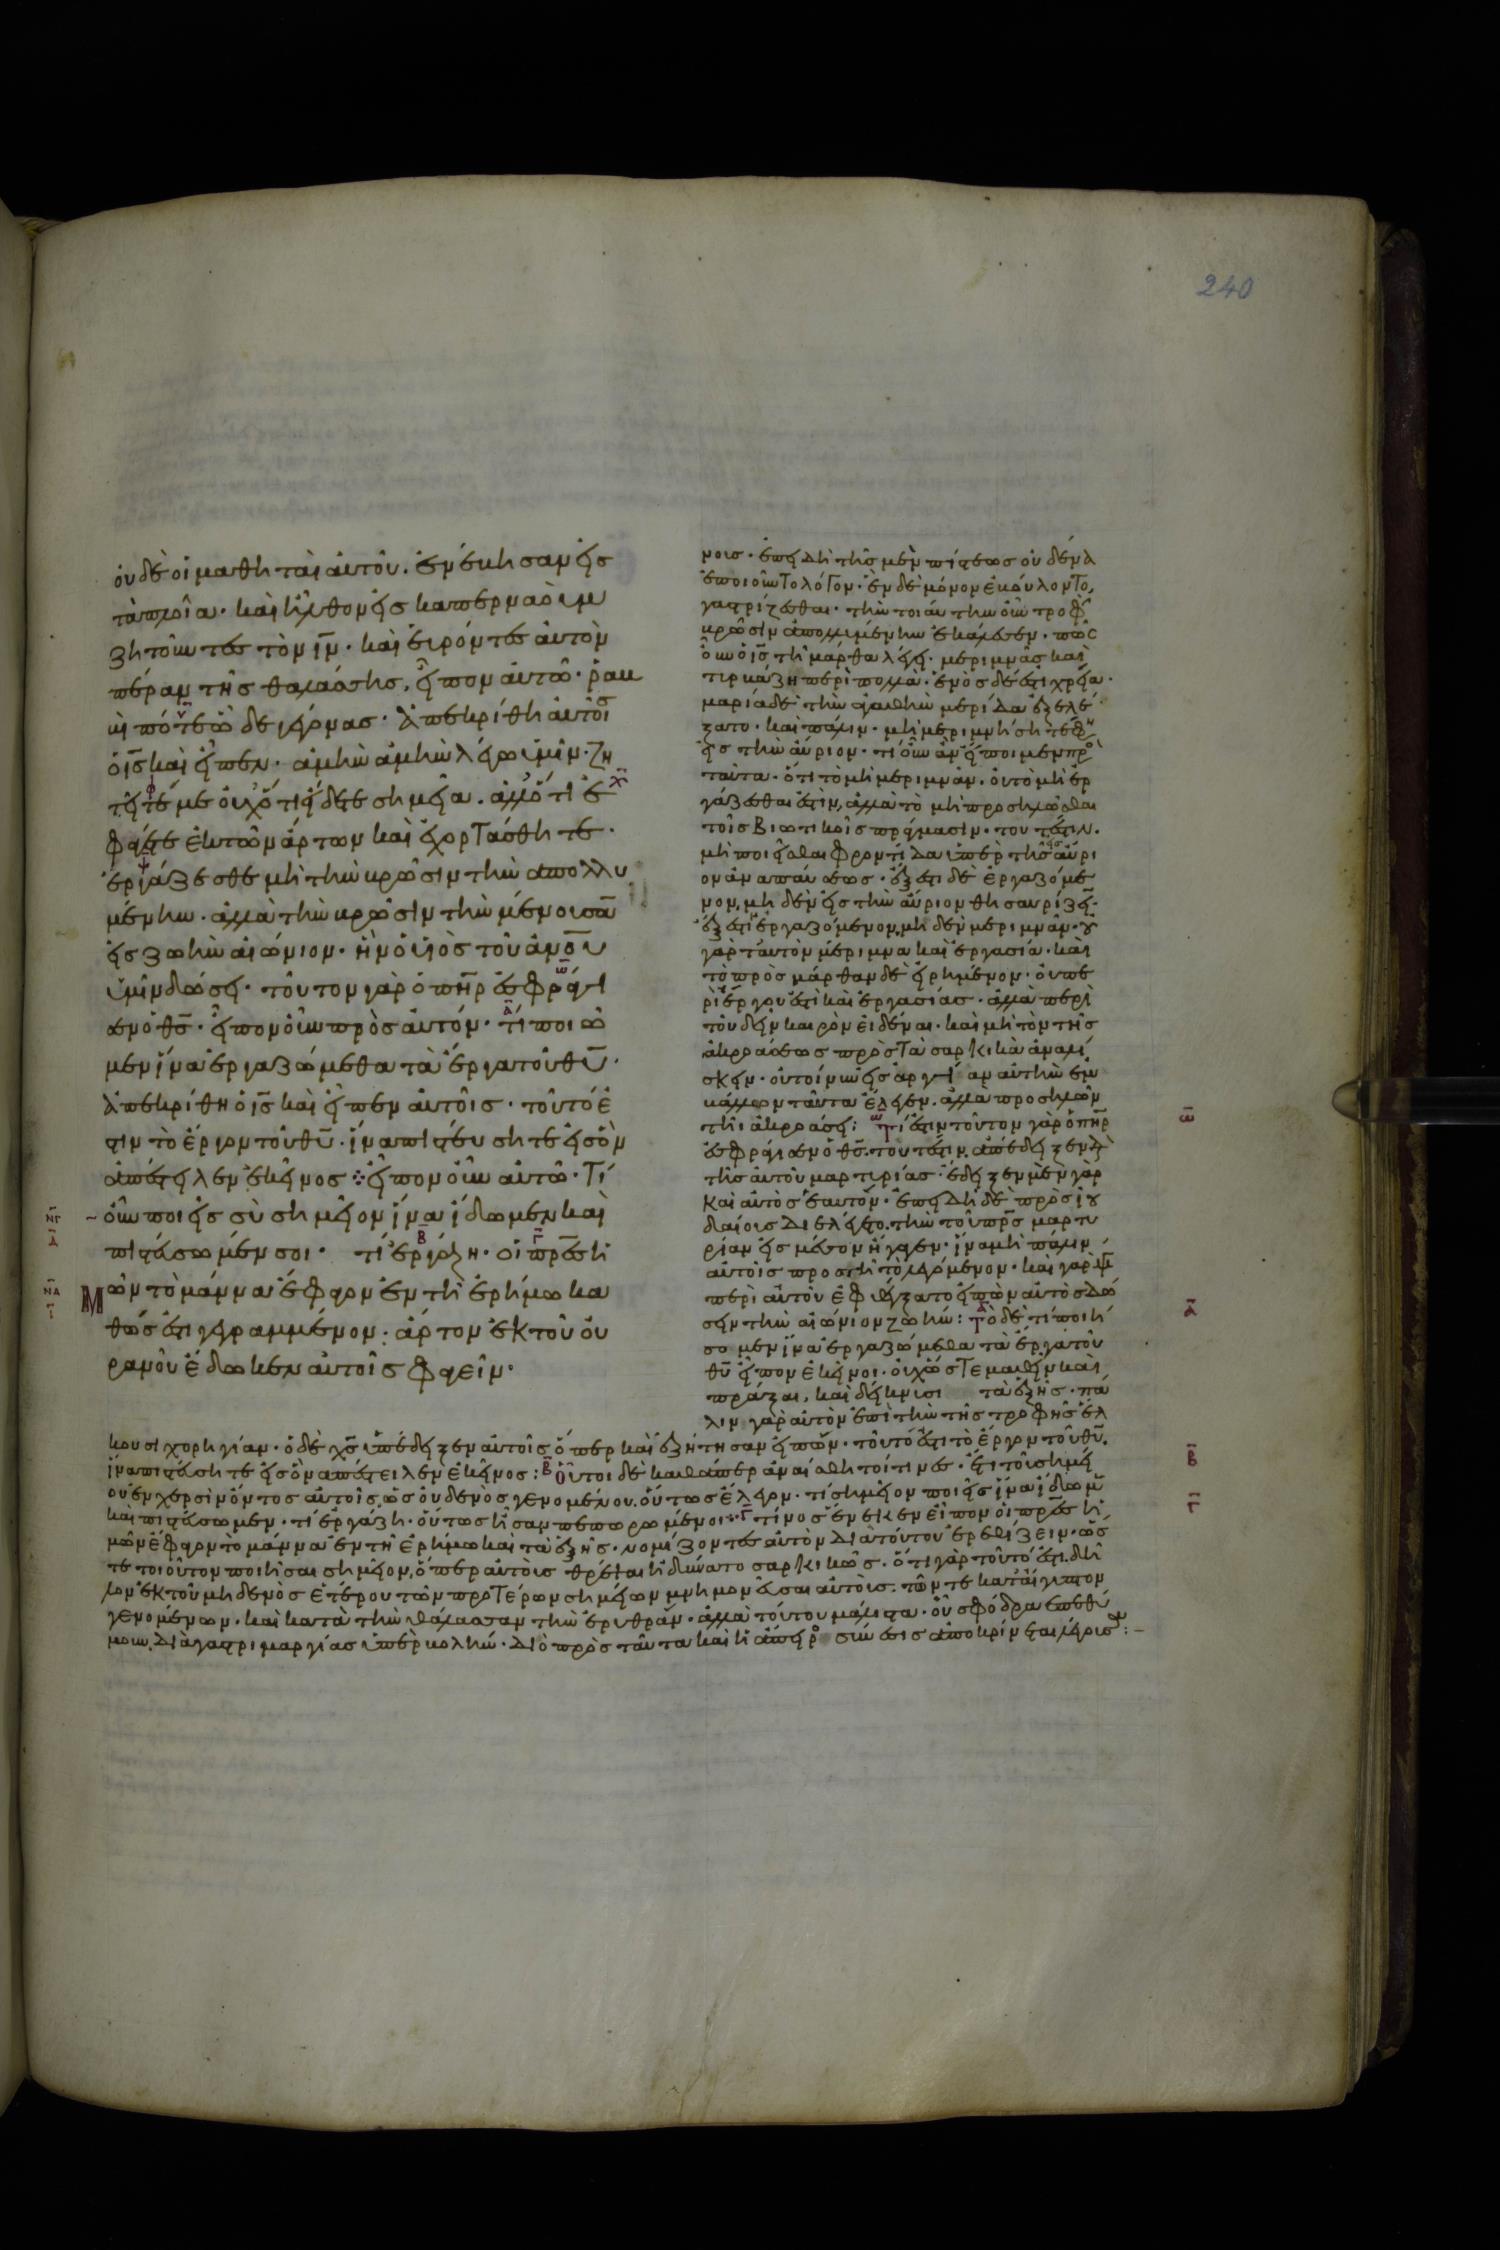 240
οὐδὲ οἱ μαθηταὶ αὐτοῦ. ἐνέβησαν εἰς
τὰ πλοῖα· καὶ ἦλθον εἰς καπερναοὺμ
ζητοῦντες τὸν ιν̅· καὶ εὑρόντες αὐτὸν
πέραν τῆς θαλάσσης, εἶπον αὐτῶ· ῥαβ
βὶ πότε ὧδε γέγονας· ἀπεκρίθη αὐτοῖς
ὁ ις̅ καὶ εἶπεν· ἀμὴν ἀμὴν λέγω ὑμῖν· ζη
τεῖτέ με οὐχ ὅτι εἴδετε σημεῖα. ἀλλ' ὅτι ἐ
φάγετε ἐκ τῶν ἄρτων καὶ ἐχορτάσθητε·
ἐργάζεσθε μὴ τὴν βρῶσιν τὴν ἀπολλυ
μένην· ἀλλὰ τὴν βρῶσιν τὴν μένουσαν
εἰς ζωὴν αἰώνιον· ἣν ὁ υἱὸς τοῦ ἀνου̅
ὑμῖν δώσει· τοῦτον γὰρ ὁ πη̅ρ ἐσφράγι
σεν ὁ θς̅· εἶπον οὖν πρὸς αὐτόν· τί ποιῶ
μεν ἵνα ἐργαζώμεθα τὰ ἔργα τοῦ θυ̅·
ἀπεκρίθη ὁ ις̅ καὶ εἶπεν αὐτοῖς· τοῦτό ἐ
στιν τὸ ἔργον τοῦ θυ̅· ἵνα πιστεύσητε εἰς ὃν
ἀπέστειλεν ἐκεῖνος· εἶπον οὖν αὐτῶ· Τί
οὖν ποιεῖς σὺ σημεῖον ἵνα ἴδωμεν καὶ
πιστεύσωμέν σοι· τί ἐργάζη· οἱ πρε̅ς ἡ
μῶν τὸ μάννα ἔφαγον ἐν τῆ ἐρήμω κα
θώς ἐστι γεγραμμένον· ἄρτον ἐκ τοῦ οὐ
ρανοῦ ἔδωκεν αὐτοῖς φαγεῖν·
νοις· ἐπειδὴ τῆς μὲν πίστεως οὐδένα
ἐποιοῦντο λόγον· ἓν δὲ μόνον ἐβούλοντο,
γαστρίζεσθαι· τὴν τοιαύτην οὖν τροφὴν
βρῶσιν ἀπολλυμένην ἐκάλεσεν· πῶς
οὖν ὁ ις̅ τῆ μάρθα λέγει· μεριμνᾶς καὶ
τυρβάζη περὶ πολλά· ἑνὸς δέ ἐστι χρεία·
μαρία δὲ τὴν ἀγαθὴν μερίδα ἐξελέ
ξατο· καὶ πάλιν· μὴ μεριμνήσητε
εἰς τὴν αὔριον· τί οὖν ἂν εἴποιμεν πρὸς
ταῦτα· ὅτι τὸ μὴ μεριμνᾶν. οὐ τὸ μὴ ἐρ
γάζεσθαι ἐστὶν, ἀλλὰ τὸ μὴ προσηλῶσθαι
τοῖς βιωτικοῖς πράγμασιν· τουτέστιν.
μὴ ποιεῖσθαι φροντίδα ὑπὲρ τῆς εἰς αὔρι
ον ἀναπαύσεως· ἔξεστι δὲ ἐργαζόμε
νον, μηδὲν εἰς τὴν αὔριον θησαυρίζειν·
ἔξεστι ἐργαζόμενον, μηδὲν μεριμνᾶν· οὐ
γὰρ ταὐτὸν μέριμνα καὶ ἐργασία· καὶ
τὸ πρὸς μάρθαν δὲ εἰρημένον· οὐ πε
ρὶ ἔργου ἐστὶ καὶ ἐργασίας· ἀλλὰ περὶ
τοῦ δεῖν καιρὸν εἰδέναι· καὶ μὴ τὸν τῆς
ἀκροάσεως πρὸς τὰ σαρκικὰ ἀναλί
σκειν· οὐ τοίνυν εἰς ἀργίαν αὐτὴν ἐμ
βάλλων ταῦτα ἔλεγεν. ἀλλὰ προσηλῶν
τῆ ἀκροάσει: Τί ἐστιν τοῦτον γὰρ ὁ πη̅ρ
ἐσφράγισεν ὁ θς̅· τουτέστιν ἀπέδειξεν διὰ
τῆς αὐτοῦ μαρτυρίας· ἔδειξεν μὲν γὰρ
καὶ αὐτὸς ἑαυτόν· ἐπειδὴ δὲ πρὸς ἰου
δαίοις διελέγετο. τὴν τοῦ πρς̅ μαρτυ
ρίαν εἰς μέσον ἤγαγεν· ἵνα μὴ πάλιν
αὐτοῖς προστῆ τὸ λεγόμενον· καὶ γὰρ
περὶ αὐτοῦ ἐφθέγξατο εἰπὼν αὐτὸς δώ
σειν τὴν αἰώνιον ζωήν: Τὸ δὲ τί ποιή
σομεν ἵνα ἐργαζώμεθα τὰ ἔργα τοῦ
θυ̅ εἶπον ἐκεῖνοι· οὐχ ὥστε μαθεῖν καὶ
πρᾶξαι, καὶ δείκνυσι τὰ ἑξῆς· πά
λιν γὰρ αὐτὸν ἐπὶ τὴν τῆς τροφῆς ἕλ
κουσι χορηγίαν· ὁ δὲ χς̅ ὑπέδειξεν αὐτοῖς ὅπερ καὶ ἐξήτησαν εἰπών· τοῦτό ἐστι τὸ ἔργον τοῦ θυ̅.
ἵνα πιστεύσητε εἰς ὃν ἀπέστειλεν ἐκεῖνος: οὗτοι δὲ καθάπερ ἀναίσθητοί τινες· ἔτι τοῦ σημεί
ου ἐν χερσὶν ὄντος αὐτοῖς, ὡς οὐδενὸς γενομένου. οὕτως ἔλεγον· τί σημεῖον ποιεῖς ἵνα ἴδωμεν
καὶ πιστεύσωμεν· τί ἐργάζη· οὕτως ἦσαν πεπωρωμένοι· τίνος ἕνεκεν εἶπον οἱ πρε̅ς ἡ
μῶν ἔφαγον τὸ μάννα ἐν τῆ ἐρήμω καὶ τὰ ἑξῆς· νομίζοντες αὐτὸν διὰ τούτου ἐρεθίζειν· ὥς
τε τοιοῦτον ποιῆσαι σημεῖον, ὅπερ αὐτοὺς θρέψαι ἠδύνατο σαρκικῶς· ὅτι γὰρ τοῦτό ἐστι. δῆ
λον ἐκ τοῦ μηδενὸς ἑτέρου τῶν προτέρων σημείων μνημονεῦσαι αὐτούς. τῶν τε κατ' αἴγυπτον
γενομένων. καὶ κατὰ τὴν θάλασσαν τὴν ἐρυθράν· ἀλλὰ τούτου μάλιστα· οὗ σφόδρα ἐπεθύ
μουν. διὰ γαστριμαργίας ὑπερβολήν· διὸ πρὸς ταῦτα καὶ